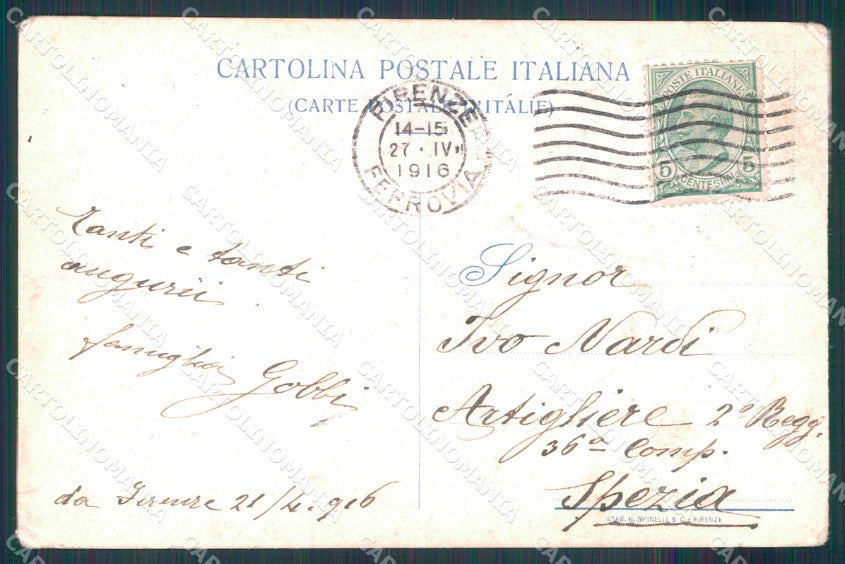 CARTOLINA POSTALE ITALIANA
(CARTE POSTALE D'ITALIE)
FIRENZE
14-15
27 · IV
1916
FERROVIA
POSTE ITALIANE
5 CENTESIMI 5
Tanti e tanti
augurii
famiglia Gobbi
da Firenze 21/4.916
Signor
Ivo Nardi
Artigliere 2º Regg.
36ª Comp.
Spezia
STAB. G. SPINELLI & C. FIRENZE
CARTOLINOMANIA